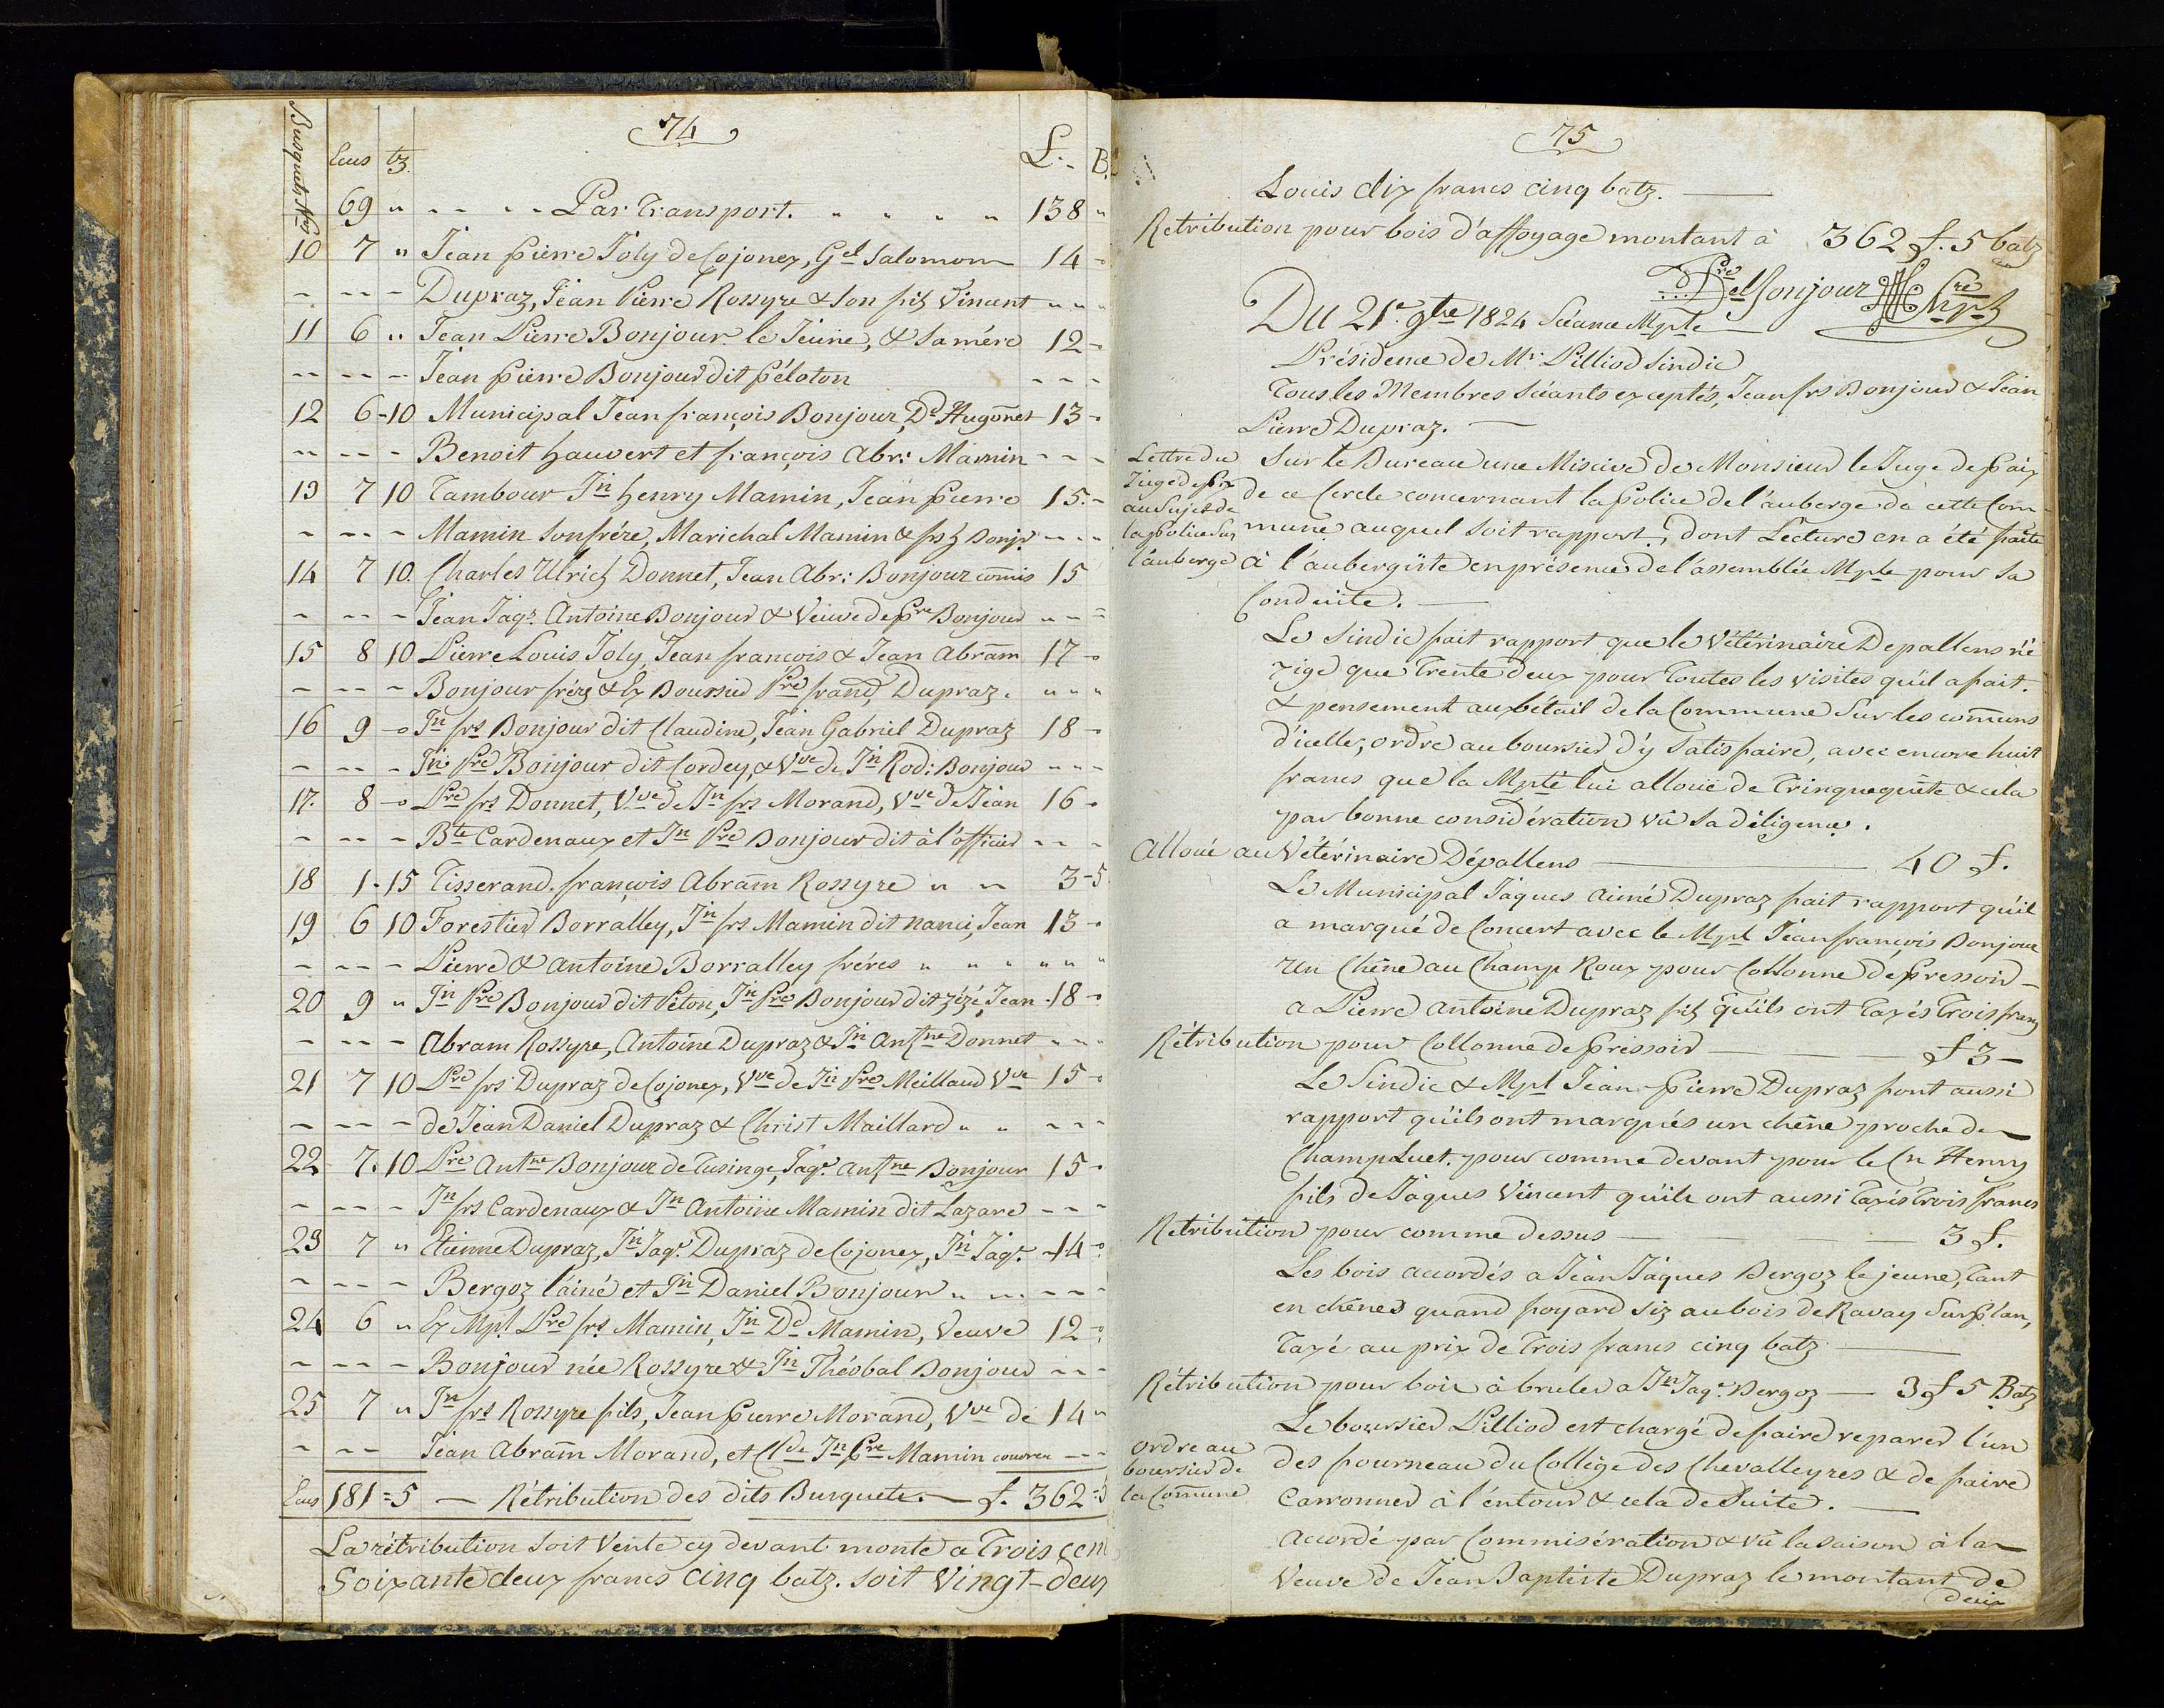 74
Busquets Nos
Ecus bz. L. B.
69 " - - - - Par Transport. " " " " 138 "
10 7 " Jean Pierre Joly de Cojonex, Gel Salomon 14 -
- - - - Dupraz, Jean Pierre Rossyre & son fils Vincent " " "
11 6 " Jean Pierre Bonjour le Jeune, & sa mére 12 -
- - - - Jean Pierre Bonjour dit Péloton - - -
12 6 - 10 Municipal Jean françois Bonjour, Dd Hugonet 13 -
- - - - Benoit hauvert et françois Abr: Mamin - - -
13 7 10 Tambour Jn henry Mamin, Jean Pierre 15. -
- - - - Mamin son frére, Marichal Mamin & frs Bonjr - - -
14 7 10. Charles Ulrich Donnet, Jean Abr: Bonjour comis 15
- - - - Jean Jaqs. Antoine Bonjour & Veuve de Pre Bonjour " - -
15 8 10 Pierre Louis Joly, Jean francois & Jean Abram 17 -
- - - - Bonjour fréres & Ex Boursier Pre franç Dupraz. " " "
16 9 - o Jn frs Bonjour dit Claudine, Jean Gabriel Dupraz 18 -
- - - - Jn Pre Bonjour dit Cordey, & Vve de Jn Rod: Bonjour " - -
17. 8 - o Pre frs Donnet, Vve de Jn frs Morand, Vve de Jean 16 -
- - - - Bte Cardenaux et Jn Pre Bonjour dit à l'officier - - -
18 1 - 15 Tisserand. françois Abram Rossyre " " 3 - 5
19 6 10 Forestier Borralley, Jn frs Mamin dit nanci, Jean 13 -
- - - - Pierre & Antoine Borralley fréres " " " " " "
20 9 " Jn Pre Bonjour dit Péton, Jn Pre Bonjour dit zézé, Jean 18 -
- - - - Abram Rossyre, Antoine Dupraz & Jn Antne Donnet " " "
21 7 10 Pre frs Dupraz de Cojonex, Vve de Jn Pre Meillaud Vve 15 -
- - - - de Jean Daniel Dupraz & Christ Maillard " " - - -
22 7. 10 Pre Antne Bonjour de Tusinge, Jaqs. Antne Bonjour 15 -
- - - - Jn frs Cardenaux & Jn Antoine Mamin dit Lazare - - -
23 7 " Etienne Dupraz, Jn Jaqs. Dupraz de Cojonex, Jn Jaqs. 14 -
- - - - Bergoz l'ainé et Jn Daniel Bonjour " " - - -
24 6 " Ex Mpl Pre frs Mamin, Jn Dd Mamin, Veuve 12 -
- - - - Bonjour née Rossyre & Jn Théobal Bonjour - - -
25 7 " Jn frs Rossyre fils, Jean Pierre Morand, Vve de 14 "
- - - Jean Abram Morand, et Jn Pre Mamin - -
Ecus 181 = 5 — Rétribution des dits Busquets. — f. 362 = 5
La rétribution soit Vente cy devant monte a Trois cent
Soixante deux francs cinq batz. soit Vingt-deux
75
Louis dix francs cinq batz. —
Retribution pour bois d'affoyage montant à 362 f. 5 batz
Bonjour
Du 21e. 9bre 1824 Séance Mple
Présidence de Mr. Pilliod Sindic
Tous les Membres séants exceptés, Jean frs Bonjour & Jean
Pierre Dupraz. —
Lettre du
Juge de Pix
au Sujet de
la police sur
l'auberge
Sur le Bureau une Missive de Monsieur le Juge de Paix
de ce Cercle concernant la Police de l'auberge de cette Com-
mune auquel soit rapport., dont Lecture en a été faite
à l'aubergiste en présence de l'assemblée Mple pour sa
Conduite. —
Le Sindic fait rapport que le Vétérinaire Depallens n'é
xige que Trente deux pour Toutes les visites qu'il a fait.
& pensement aux bétail de la Commune sur les comuns
d'icelle; ordre au boursier d'y satisfaire, avec encore huit
francs que la Mpté lui alloue de Tringueguelte & cela
par bonne considération vû sa déligence.
Alloué au Vétérinaire Dépallens — 40 f.
Le Municipal Jaques Aimé Dupraz fait rapport qu'il
a marqué de Concert avec le Mpl Jean françois Bonjour
un Chêne au Champ Roux pour Collonne de Pressoir -
a Pierre Antoine Dupraz fils qu'ils ont Taxés Trois francs
Rétribution pour Collonne de Pressoir — f 3 -
Le Sindic & Mpl Jean-Pierre Dupraz font aussi
rapport qu'ils ont marqués un chêne proche de
Champ Luet. pour comme devant pour le Cn Henry
fils de Jaques Vincent qu'ils ont aussi Taxés Trois francs
Rétribution pour comme dessus — 3 f.
Les bois accordés a Jean Jaques Bergoz le jeune, Tant
en chênes quand foyard siz au bois de Ravay sur Plan,
Taxé au prix de Trois francs cinq batz —
Rétribution pour bois à bruler a Jn Jaqs. Bergoz — 3 f 5 Batz
ordre au
boursier de
la Comune
Le boursier Pilliod est chargé de faire reparer l'un
des fourneau du Collège des Chevalleyres & de faire
Carronner à l'entour & cela de Suite. —
Accordé par Commisération & vû la saison à la
Veuve de Jean Baptiste Dupraz le montant de
deux